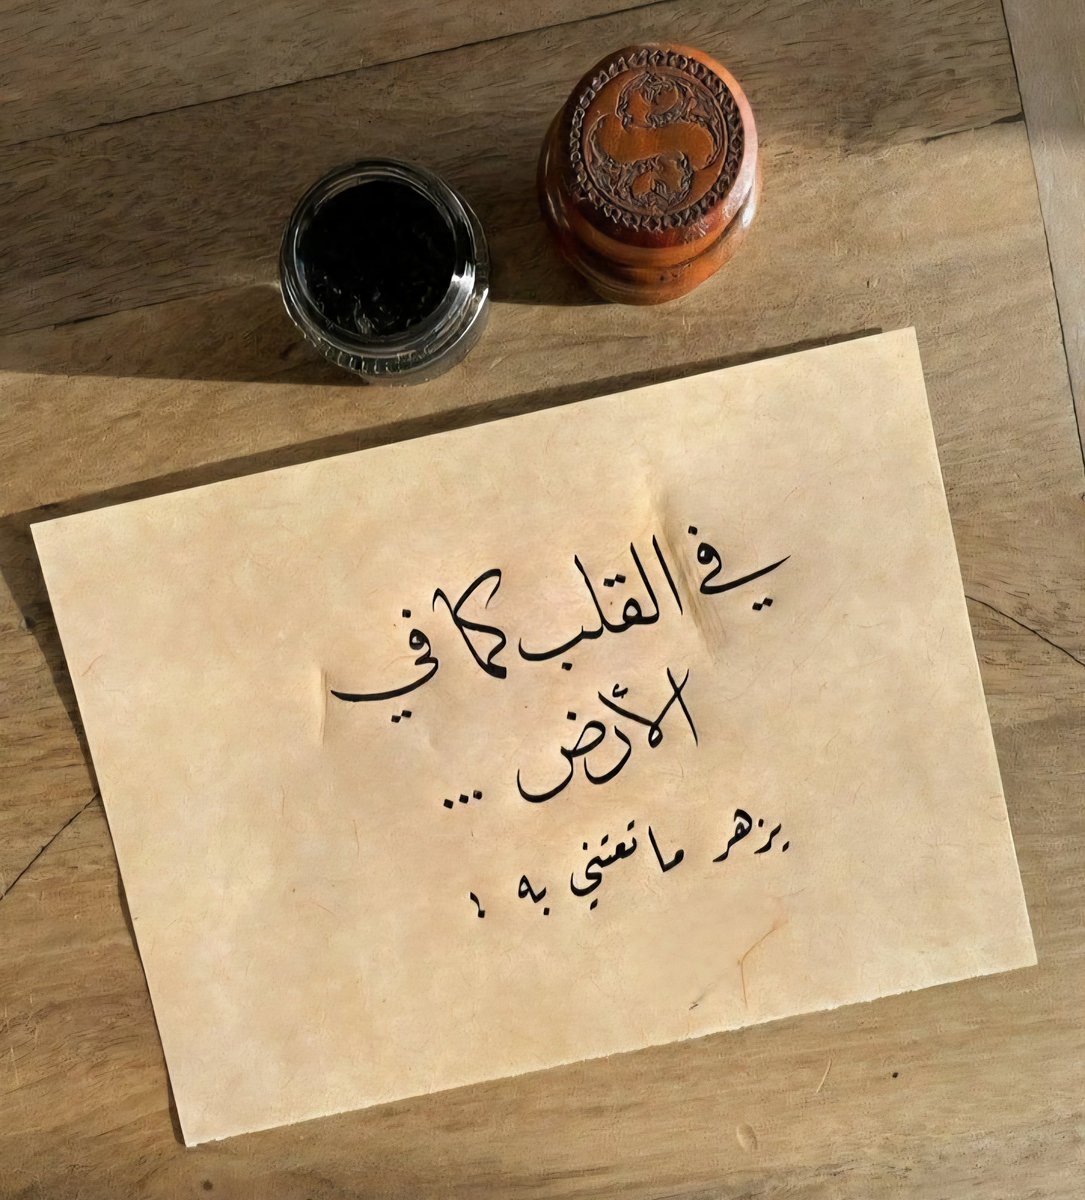 في القلب كما في
الأرض ...
يزهر ما تعتني به !